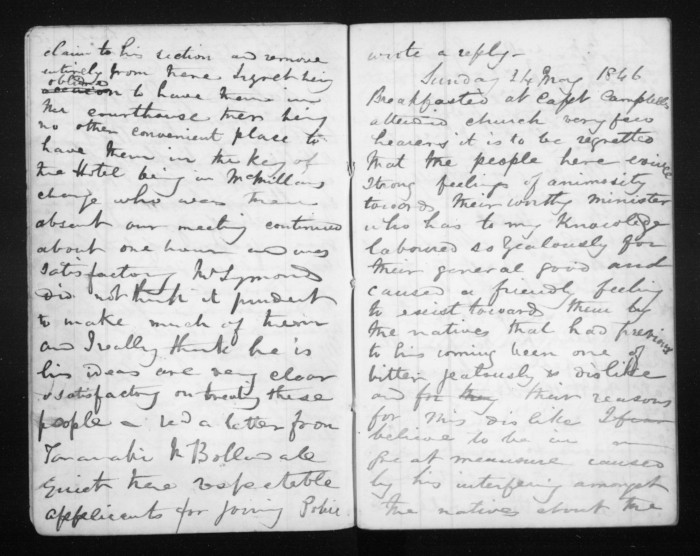 claim to his section and remove
entirely from here I regret being
obliged
to have them in
the courthouse there being
no other convenient place to
have them in the key of
the Hotel being in McMillans
charge who was then
absent our meeting continued
about one hour and was
satisfactory Mr Symonds
did not think it prudent
to make much of them
and I really think he is
his ideas are very clear
& satisfactory on treating these
people - red a letter from
Taranaki Mr Bolles ale
quiet there respectable
applicants for joining Police
wrote a reply -
Sunday 24 May 1846
Breakfasted at Capt Campbells
attended church very few
hearers it is to be regretted
that the people here evince
strong feelings of animosity
towards their worthy minister
who has to my knowledge
laboured so zealously for
their general good and
caused a friendly feeling
to exist towards them by
the natives that had previous
to his coming been one of
bitter jealously & dislike
and for their reasons
for this dislike I fear
believe to be in
great measure caused
by his interfering amongst
the natives about the